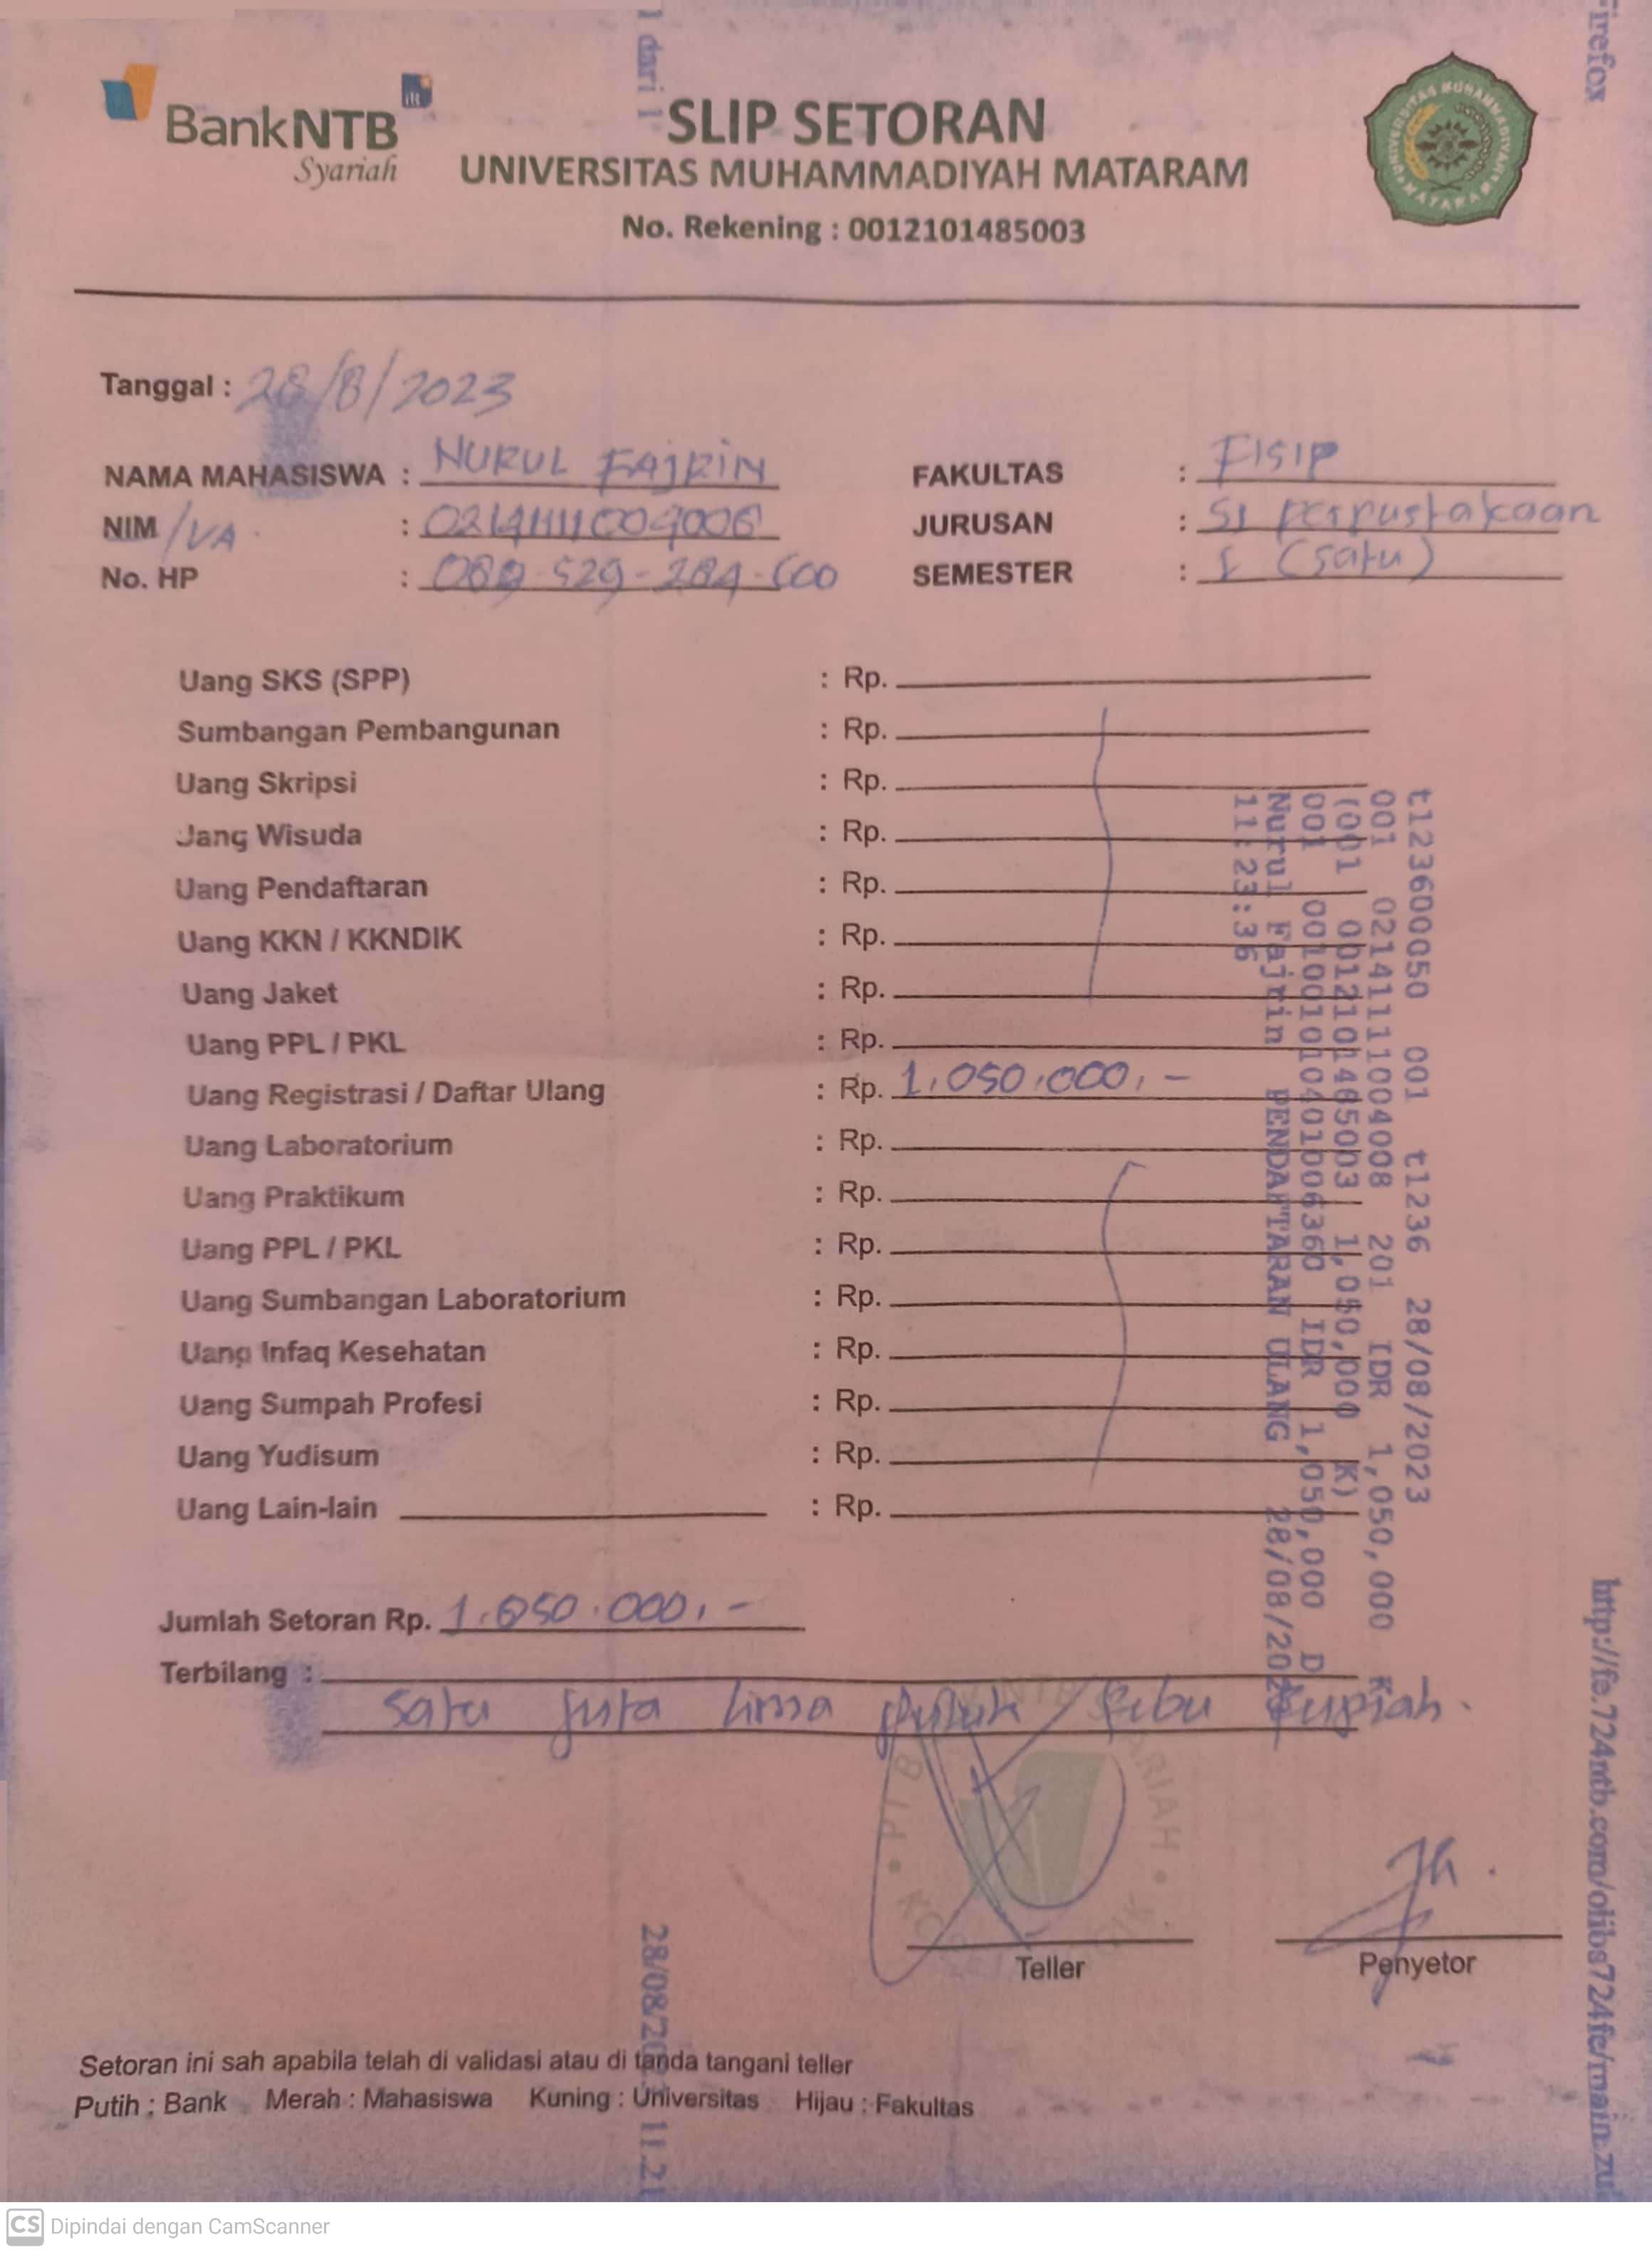 Firefox
1 dari 1
BankNTB
Syariah
SLIP SETORAN
UNIVERSITAS MUHAMMADIYAH MATARAM
No. Rekening : 0012101485003
UNIVERSITAS MUHAMMADIYAH MATARAM
Tanggal : 28/8/2023
NAMA MAHASISWA : NURUL FAJRIN
NIM /VA :
No. HP :
FAKULTAS : FISIP
JURUSAN : S1 perpustakaan
SEMESTER : I (satu)
Uang SKS (SPP) : Rp.
Sumbangan Pembangunan : Rp.
Uang Skripsi : Rp.
Uang Wisuda : Rp.
Uang Pendaftaran : Rp.
Uang KKN / KKNDIK : Rp.
Uang Jaket : Rp.
Uang PPL / PKL : Rp.
Uang Registrasi / Daftar Ulang : Rp. 1.050.000,-
Uang Laboratorium : Rp.
Uang Praktikum : Rp.
Uang PPL / PKL : Rp.
Uang Sumbangan Laboratorium : Rp.
Uang Infaq Kesehatan : Rp.
Uang Sumpah Profesi : Rp.
Uang Yudisum : Rp.
Uang Lain-lain : Rp.
t123600050 001 t1236 28/08/2023
001 02141111004008 201 IDR 1,050,000 K
(001 0012101485003 1,050,000 K)
001 001001010401006360 IDR 1,050,000 D
Nurul Fajrin PENDAFTARAN ULANG 28/08/2023
11:23:36
Jumlah Setoran Rp. 1.050.000,-
Terbilang :
satu juta lima puluh ribu rupiah.
Teller
Penyetor
Setoran ini sah apabila telah di validasi atau di tanda tangani teller
Putih : Bank Merah : Mahasiswa Kuning : Universitas Hijau : Fakultas
http://fe.724ntb.com/olibs724fe/main.zu
28/08/20 11.21
CS Dipindai dengan CamScanner